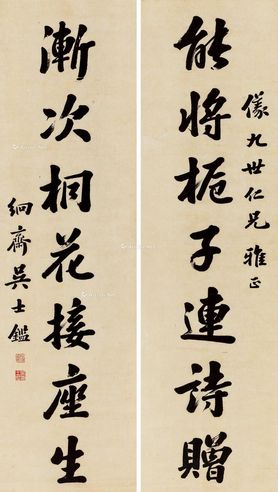 儀九世仁兄雅正
能将栀子連詩贈
漸次桐花接座生
絅齋吳士鑑